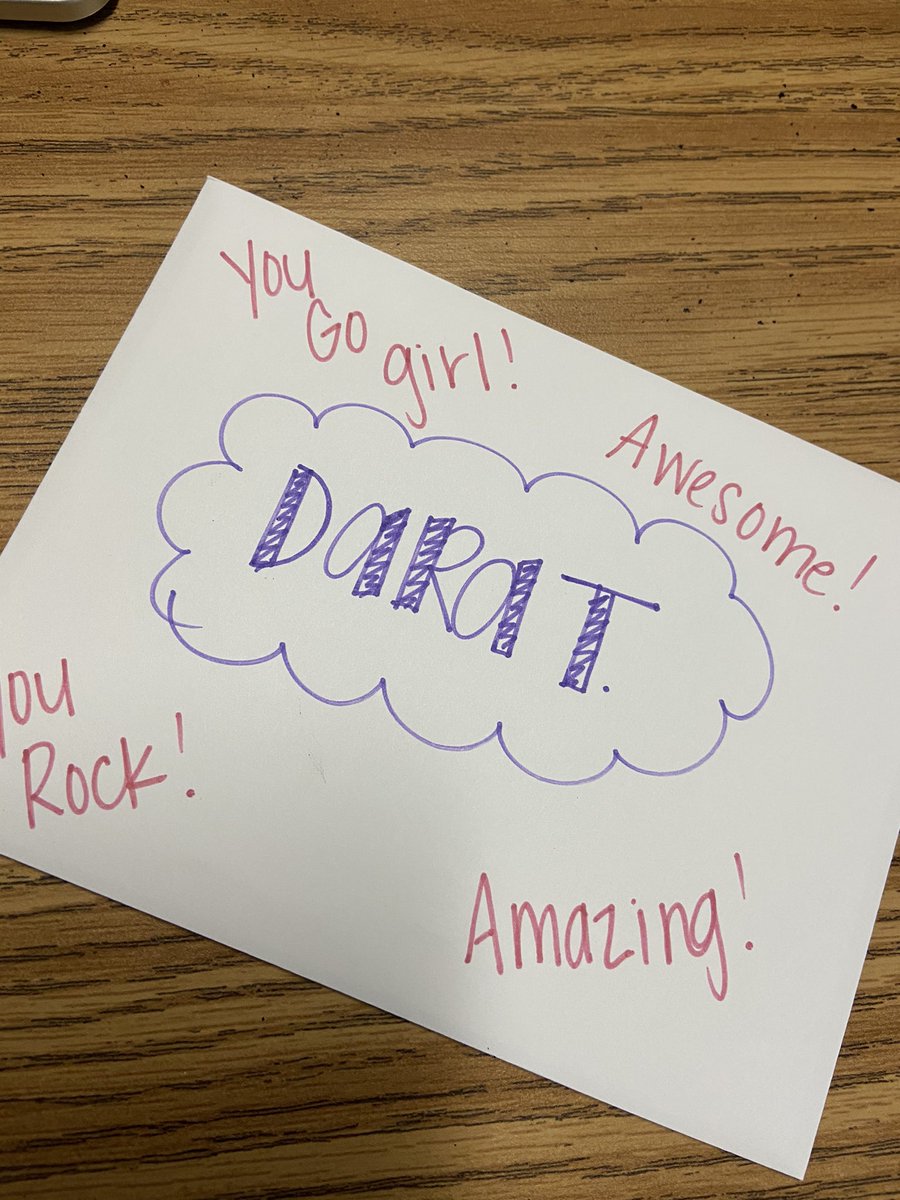 You
Go
girl!
Awesome!
DaRa T.
you
Rock!
Amazing!